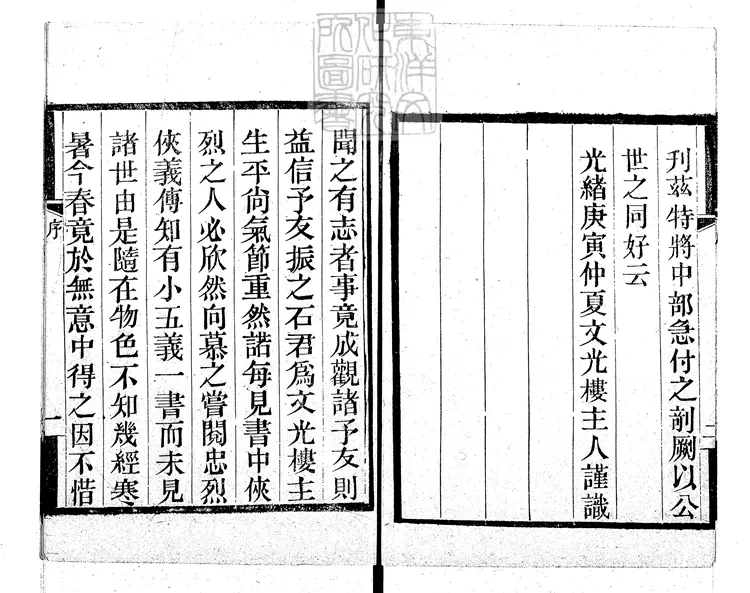 刋茲特將中部急付之剞劂以公
世之同好云
光緒庚寅仲夏文光樓主人謹識
二
聞之有志者事竟成觀諸予友則
益信予友振之石君爲文光樓主
生平尙氣節重然諾每見書中俠
烈之人必欣然向慕之嘗閱忠烈
俠義傳知有小五義一書而未見
諸世由是隨在物色不知幾經寒
暑今春竟於無意中得之因不惜
序
一
東洋文
化研究
所圖書